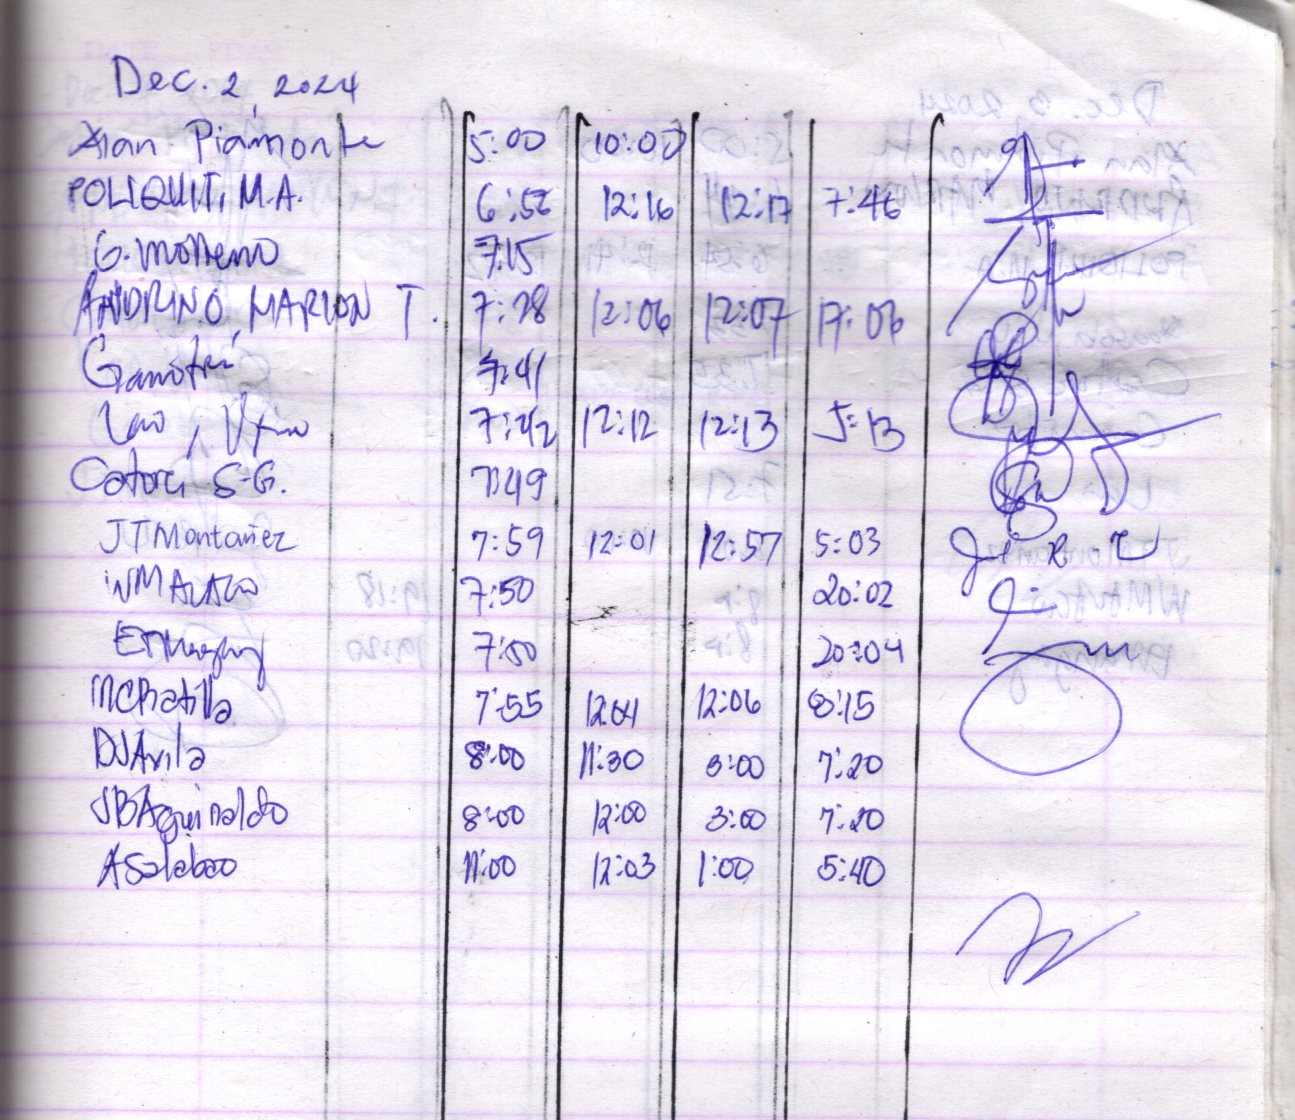 Dec. 2, 2024
Xian Piamonte 5:00 10:00
POLIQUIT, M.A. 6:56 12:16 12:17 7:46
G. Moreno 7:15
ANDRINO, MARION T. 7:28 12:06 12:07 17:06
7:41
7:42 12:12 12:13 5:13
S-G. 7:49
JTMontañez 7:59 12:01 12:57 5:03
7:50 20:02
7:50 20:04
MCBatilla 7:55 12:04 12:06 8:15
DJAvila 8:00 11:30 3:00 7:20
JBAguinaldo 8:00 12:00 3:00 7:20
ASalabao 11:00 12:03 1:00 5:40